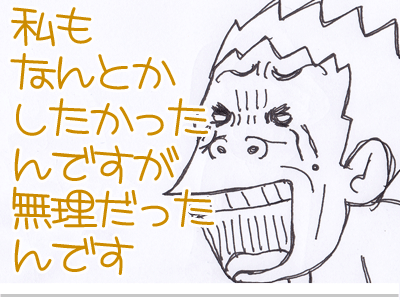 私も
なんとか
したかった
んですが
無理だった
んです